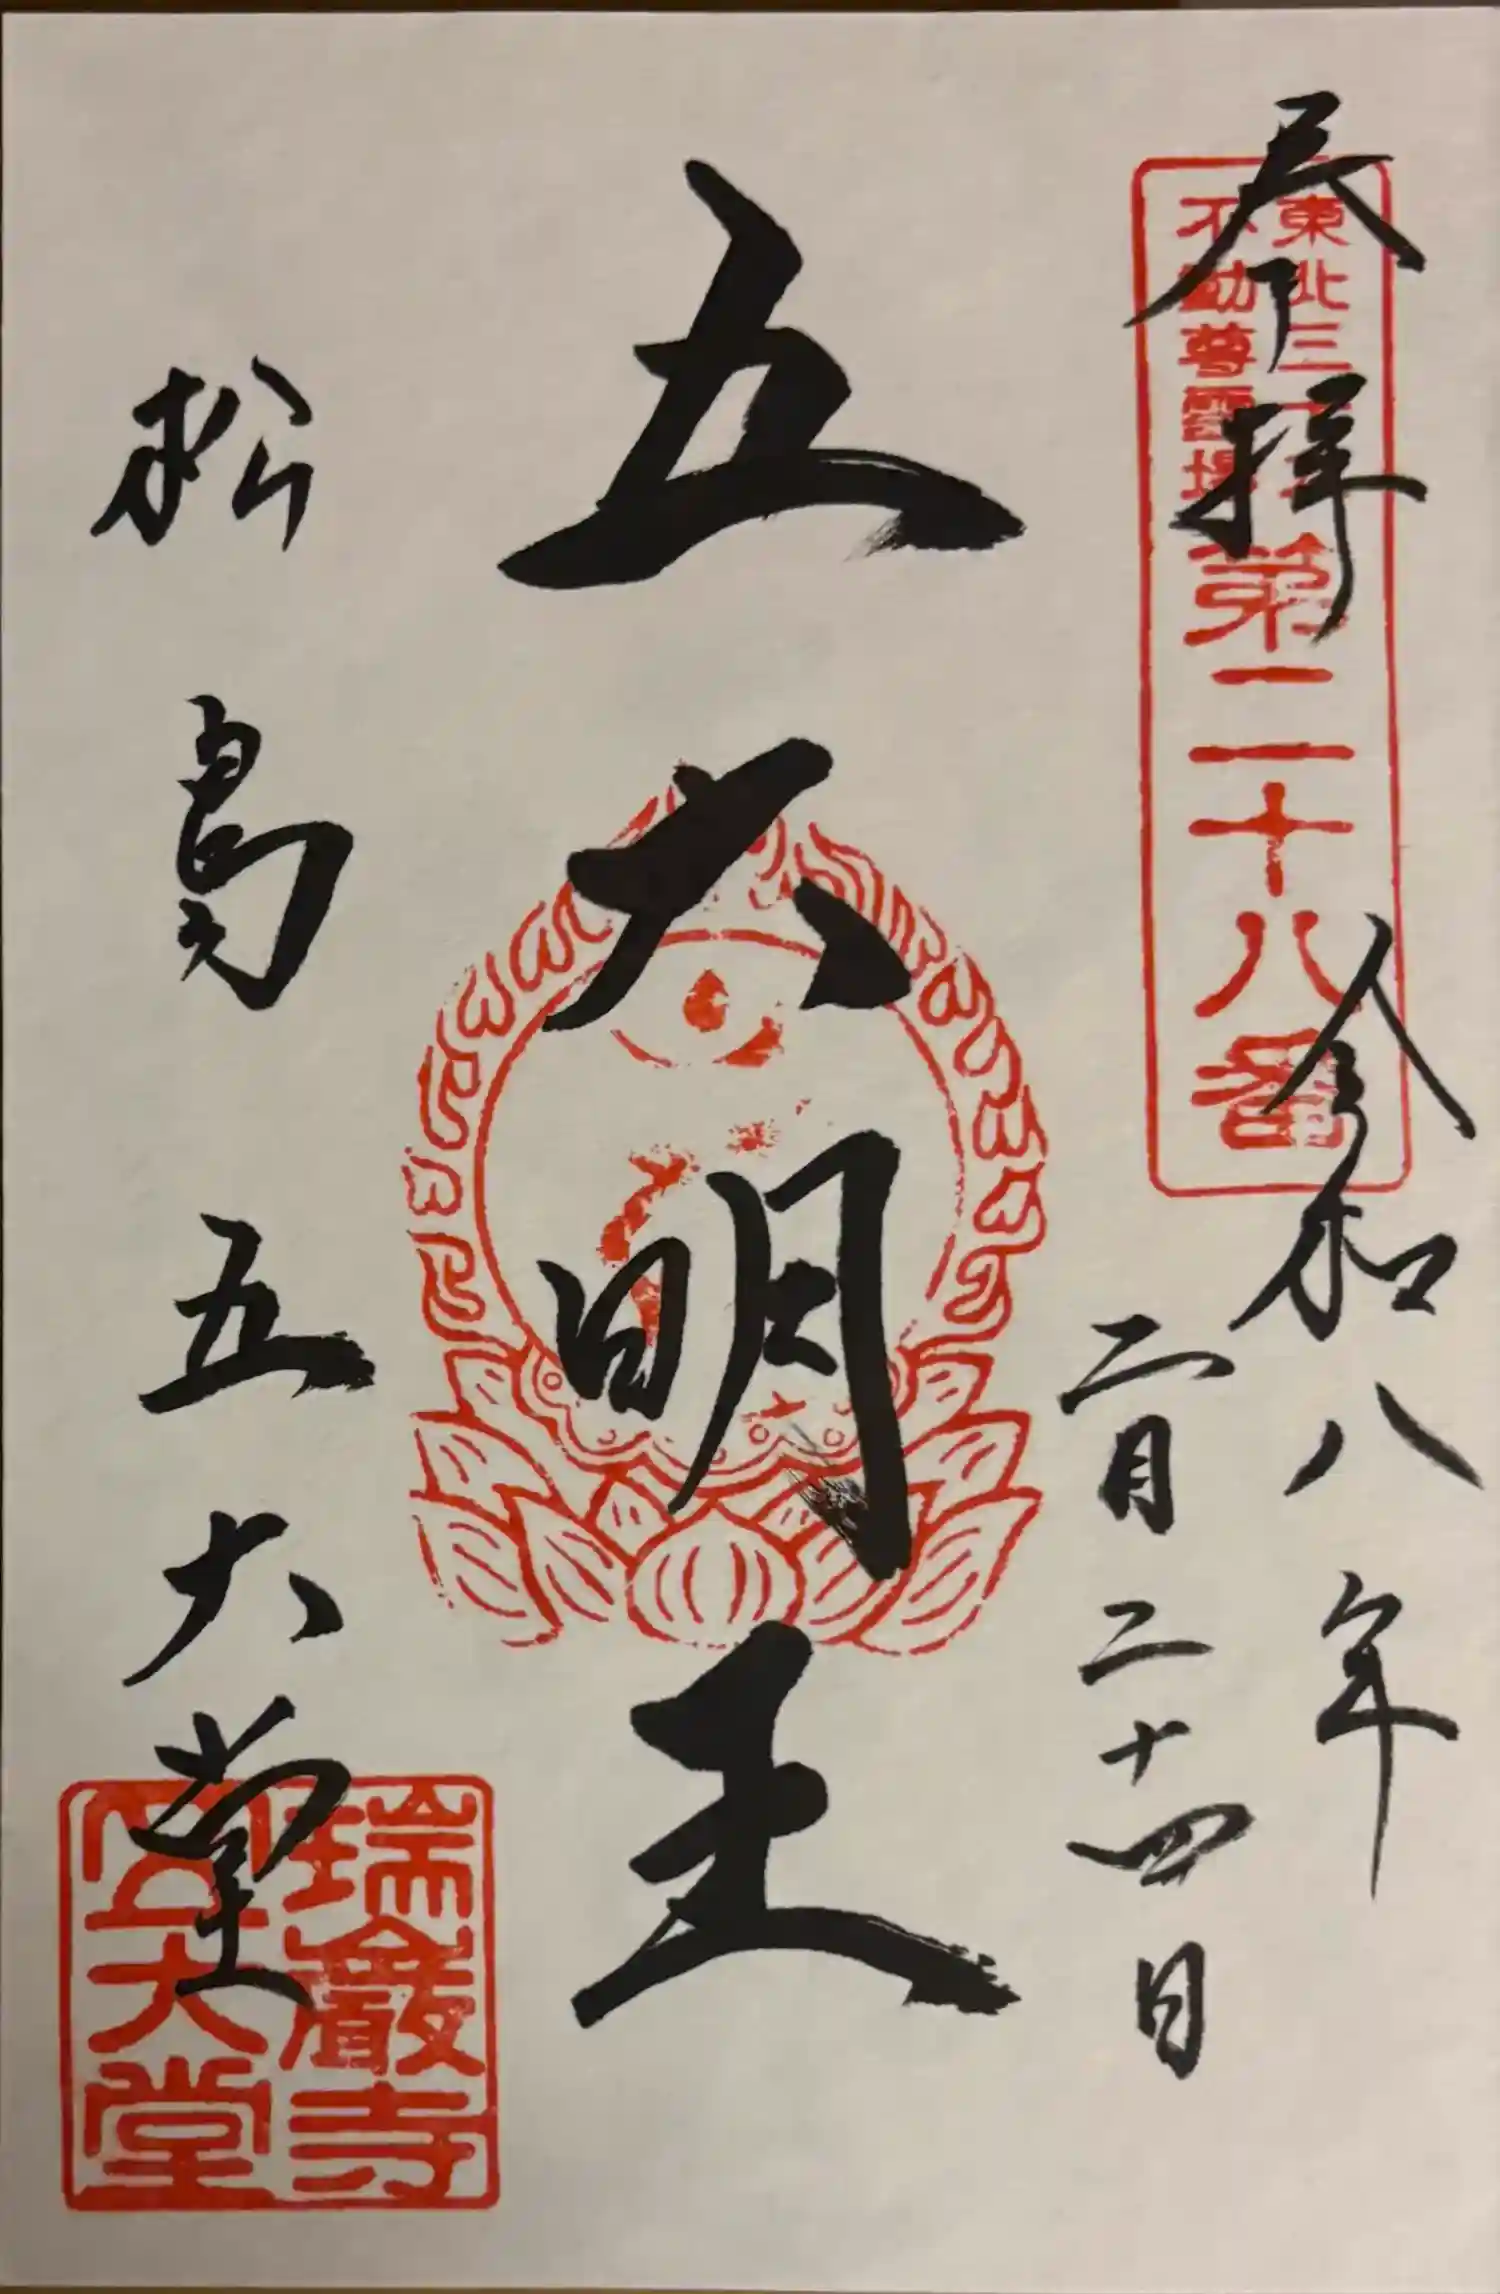 奉拝
東北三十六
不動尊霊場
第二十八番
令和八年
二月二十四日
五大明王
松島五大堂
瑞巌寺
五大堂